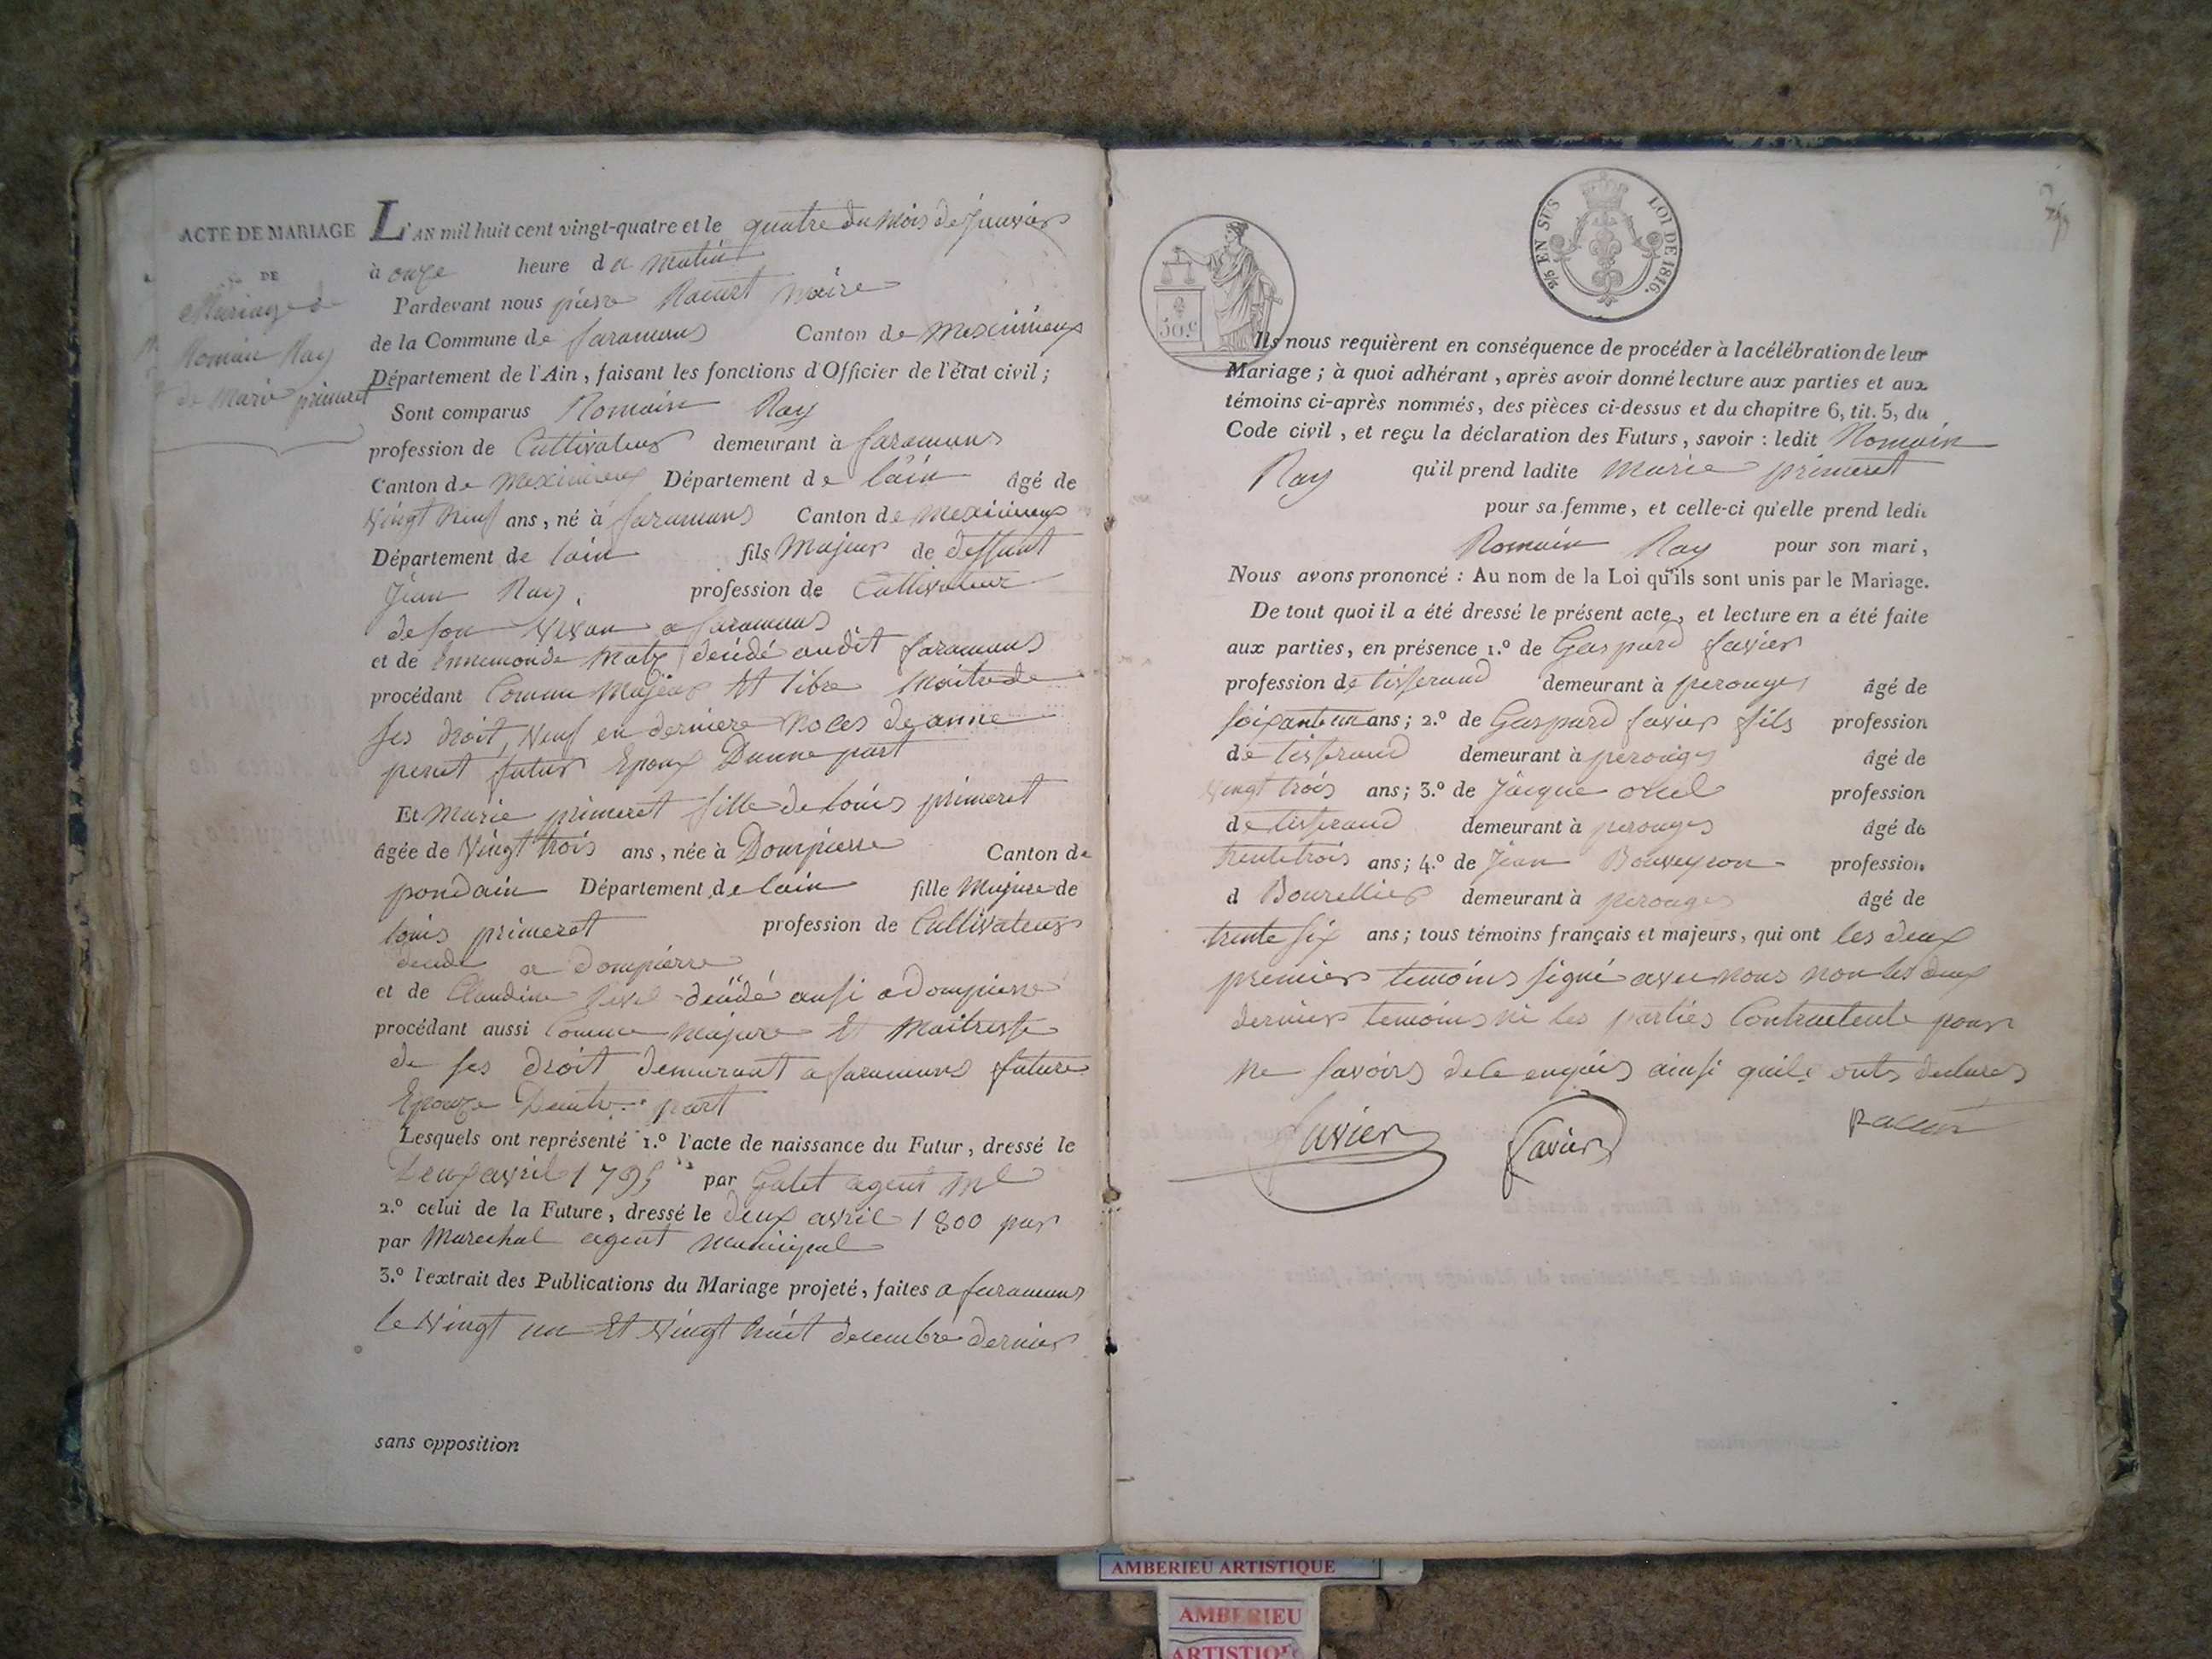 ACTE DE MARIAGE
DE
Mariage de
Romain Ray
de Marie primeret
L'AN mil huit cent vingt-quatre et le quatre du mois de Janvier
à onze heure du matin
Pardevant nous pierre Maire
de la Commune de faramans Canton de Meximieux
Département de l'Ain, faisant les fonctions d'Officier de l'état civil;
Sont comparus Romain Ray
profession de Cultivateur demeurant à faramans
Canton de Meximieux Département de lain âgé de
Vingt neuf ans, né à faramans Canton de meximieux
Département de lain fils Majeur de deffunt
Jean Ray profession de Cultivateur
de son Vivan a faramans
et de Ennemonde décédé audit faramans
procédant Comme Majeur Et libre Maitre de
ses droit, Veuf en derniere Noces de anne
peret futur Epoux Dunne part
Et Marie primeret fille de louis primeret
âgée de Vingt trois ans, née à Dompierre Canton de
pondain Département de lain fille Majure de
louis primeret profession de Cultivateur
décédé a dompierre
et de Claudine décédé ausi a Dompierre
procédant aussi Comme majure Et Maitresse
de ses droit demurant a faramans future
Epouze Dautre part
Lesquels ont représenté 1.º l'acte de naissance du Futur, dressé le
Deux avril 1795 par Galet agent ml
2.º celui de la Future, dressé le deux avril 1800 par
par Marechal agent municipal
3.º l'extrait des Publications du Mariage projeté, faites a faramans
le Vingt un Et Vingt huit decembre dernier
sans opposition
2/5 EN SUS LOI DE 1816.
50.c
Ils nous requièrent en conséquence de procéder à la célébration de leur
Mariage; à quoi adhérant, après avoir donné lecture aux parties et aux
témoins ci-après nommés, des pièces ci-dessus et du chapitre 6, tit. 5, du
Code civil, et reçu la déclaration des Futurs, savoir: ledit Romain
Ray qu'il prend ladite Marie primeret
pour sa femme, et celle-ci qu'elle prend ledit
Romain Ray pour son mari,
Nous avons prononcé: Au nom de la Loi qu'ils sont unis par le Mariage.
De tout quoi il a été dressé le présent acte, et lecture en a été faite
aux parties, en présence 1.º de Gaspard favier
profession de tisserand demeurant à perouges âgé de
soixante un ans; 2.º de Gaspard favier fils profession
de tisserand demeurant à perouges âgé de
Vingt trois ans; 3.º de Jacque profession
de tisserand demeurant à perouges âgé de
trente trois ans; 4.º de Jean Bouveyron profession
d Bourellier demeurant à perouges âgé de
trente six ans; tous témoins français et majeurs, qui ont les deux
premier temoins signé avec nous non les deux
dernier temoins ni les parties Contractente pour
ne savoirs de ce enquis ainsi quils onts declarer
favier favier
AMBERIEU ARTISTIQUE
AMBERIEU
ARTISTIQUE